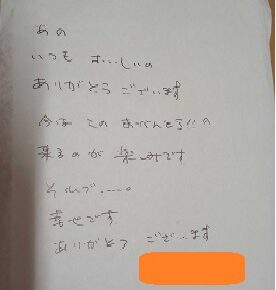 あの
いつも おいしいの
ありがとう ございます
この
来るのが 楽しみです
それで.....。
幸せです
ありがとう ございます